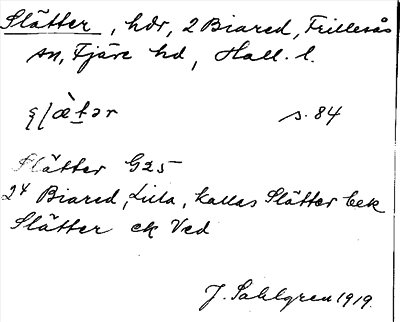 Slätter, hdr, 2 Biared, Frillesås
sn, Fjäre hd, Hall. l.
s. 84
Slätter G25
2⁴ Biared, Lilla, kallas Slätter bek
Slätter ek Ved
J. Sahlgren 1919.